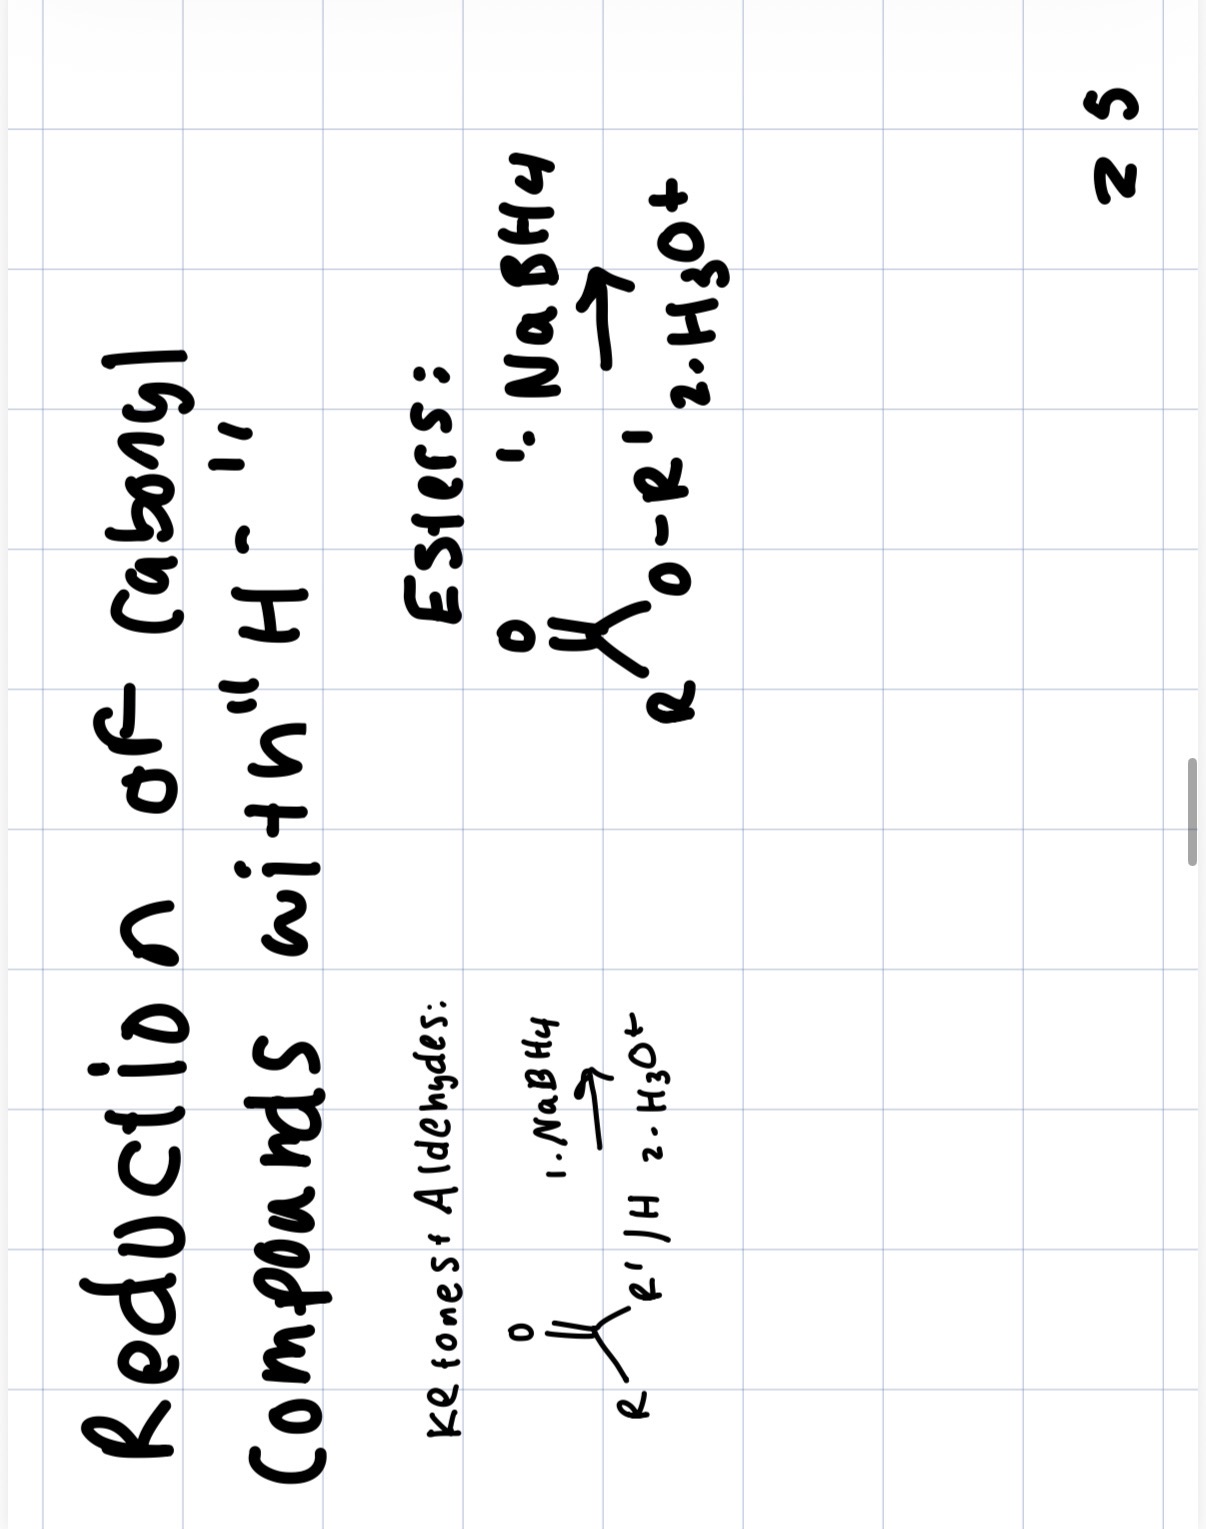 Reduction of Cabonyl
Compounds with "H-"
Ketones + Aldehydes:
O
R
R'/H
1. NaBH4
2. H3O+
Esters:
O
R
O-R'
1. NaBH4
2. H3O+
25